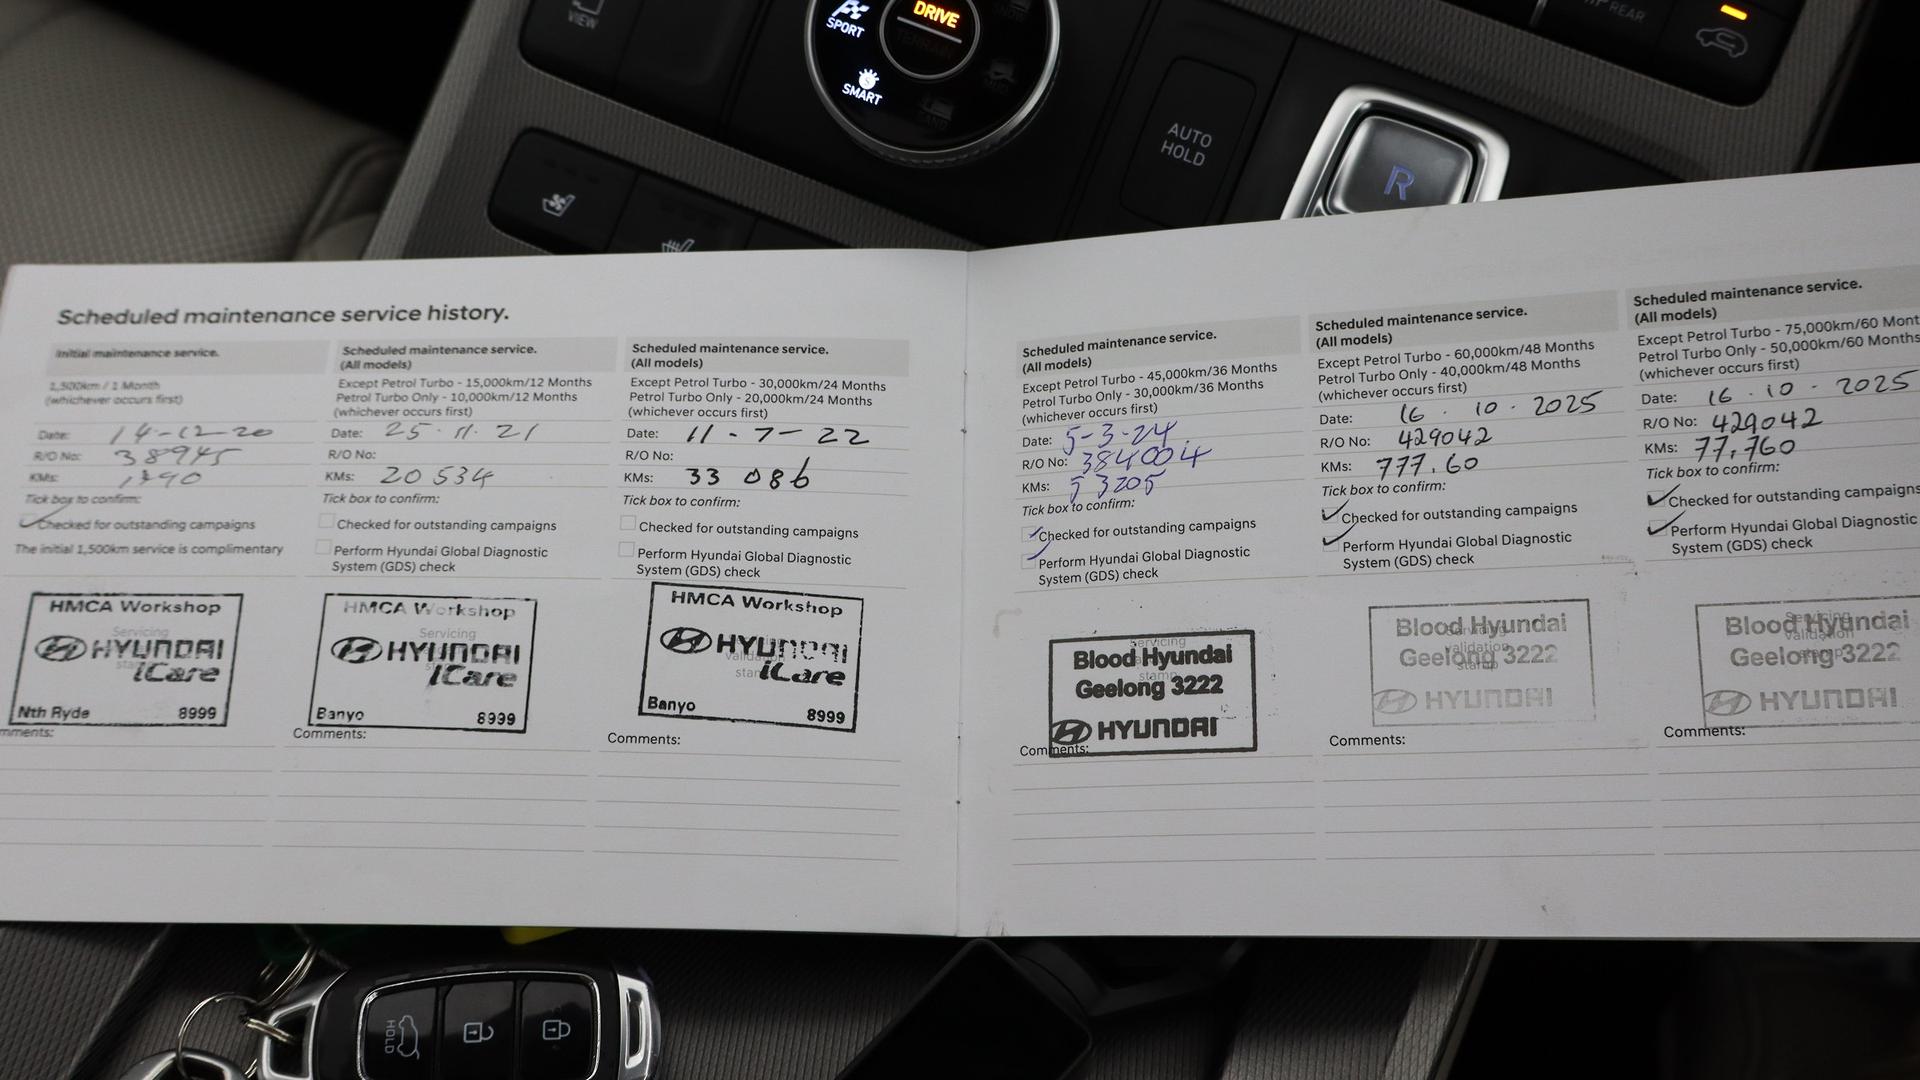 VIEW
SPORT
DRIVE
TERRAIN
SMART
SAND
AUTO
HOLD
R
REAR
Scheduled maintenance service history.
Initial maintenance service.
1,500km / 1 Month
(whichever occurs first)
Date: 14-12-20
R/O No: 38945
KMs:
Tick box to confirm:
Checked for outstanding campaigns
The initial 1,500km service is complimentary
HMCA Workshop
Servicing
HYUNDAI
iCare
Nth Ryde 8999
mments:
Scheduled maintenance service.
(All models)
Except Petrol Turbo - 15,000km/12 Months
Petrol Turbo Only - 10,000km/12 Months
(whichever occurs first)
Date: 25.11.21
R/O No:
KMs: 20 534
Tick box to confirm:
Checked for outstanding campaigns
Perform Hyundai Global Diagnostic
System (GDS) check
HMCA Workshop
Servicing
HYUNDAI
iCare
Banyo 8999
Comments:
Scheduled maintenance service.
(All models)
Except Petrol Turbo - 30,000km/24 Months
Petrol Turbo Only - 20,000km/24 Months
(whichever occurs first)
Date: 11-7-22
R/O No:
KMs: 33 086
Tick box to confirm:
Checked for outstanding campaigns
Perform Hyundai Global Diagnostic
System (GDS) check
HMCA Workshop
HYUNDAI
validation
iCare
Banyo 8999
Comments:
Scheduled maintenance service.
(All models)
Except Petrol Turbo - 45,000km/36 Months
Petrol Turbo Only - 30,000km/36 Months
(whichever occurs first)
Date: 5-3-24
R/O No: 384004
KMs: 53205
Tick box to confirm:
Checked for outstanding campaigns
Perform Hyundai Global Diagnostic
System (GDS) check
Servicing
Blood Hyundai
stamp
Geelong 3222
HYUNDAI
Comments:
Scheduled maintenance service.
(All models)
Except Petrol Turbo - 60,000km/48 Months
Petrol Turbo Only - 40,000km/48 Months
(whichever occurs first)
Date: 16.10.2025
R/O No: 429042
KMs: 777.60
Tick box to confirm:
Checked for outstanding campaigns
Perform Hyundai Global Diagnostic
System (GDS) check
Blood Hyundai
Servicing
validation
Geelong 3222
stamp
HYUNDAI
Comments:
Scheduled maintenance service.
(All models)
Except Petrol Turbo - 75,000km/60 Mont
Petrol Turbo Only - 50,000km/60 Months
(whichever occurs first)
Date: 16.10.2025
R/O No: 429042
KMs: 77,760
Tick box to confirm:
Checked for outstanding campaigns
Perform Hyundai Global Diagnostic
System (GDS) check
Servicing
Blood Hyundai
validation
Geelong 3222
stamp
HYUNDAI
Comments:
HOLD